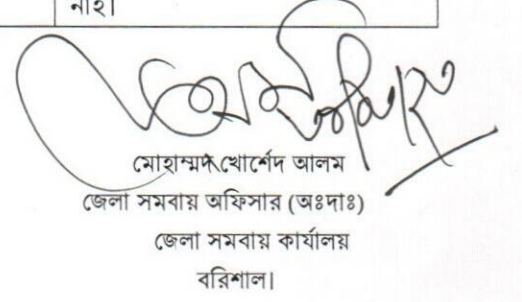 নাই।
মোহাম্মদ খোর্শেদ আলম
জেলা সমবায় অফিসার (অঃদাঃ)
জেলা সমবায় কার্যালয়
বরিশাল।